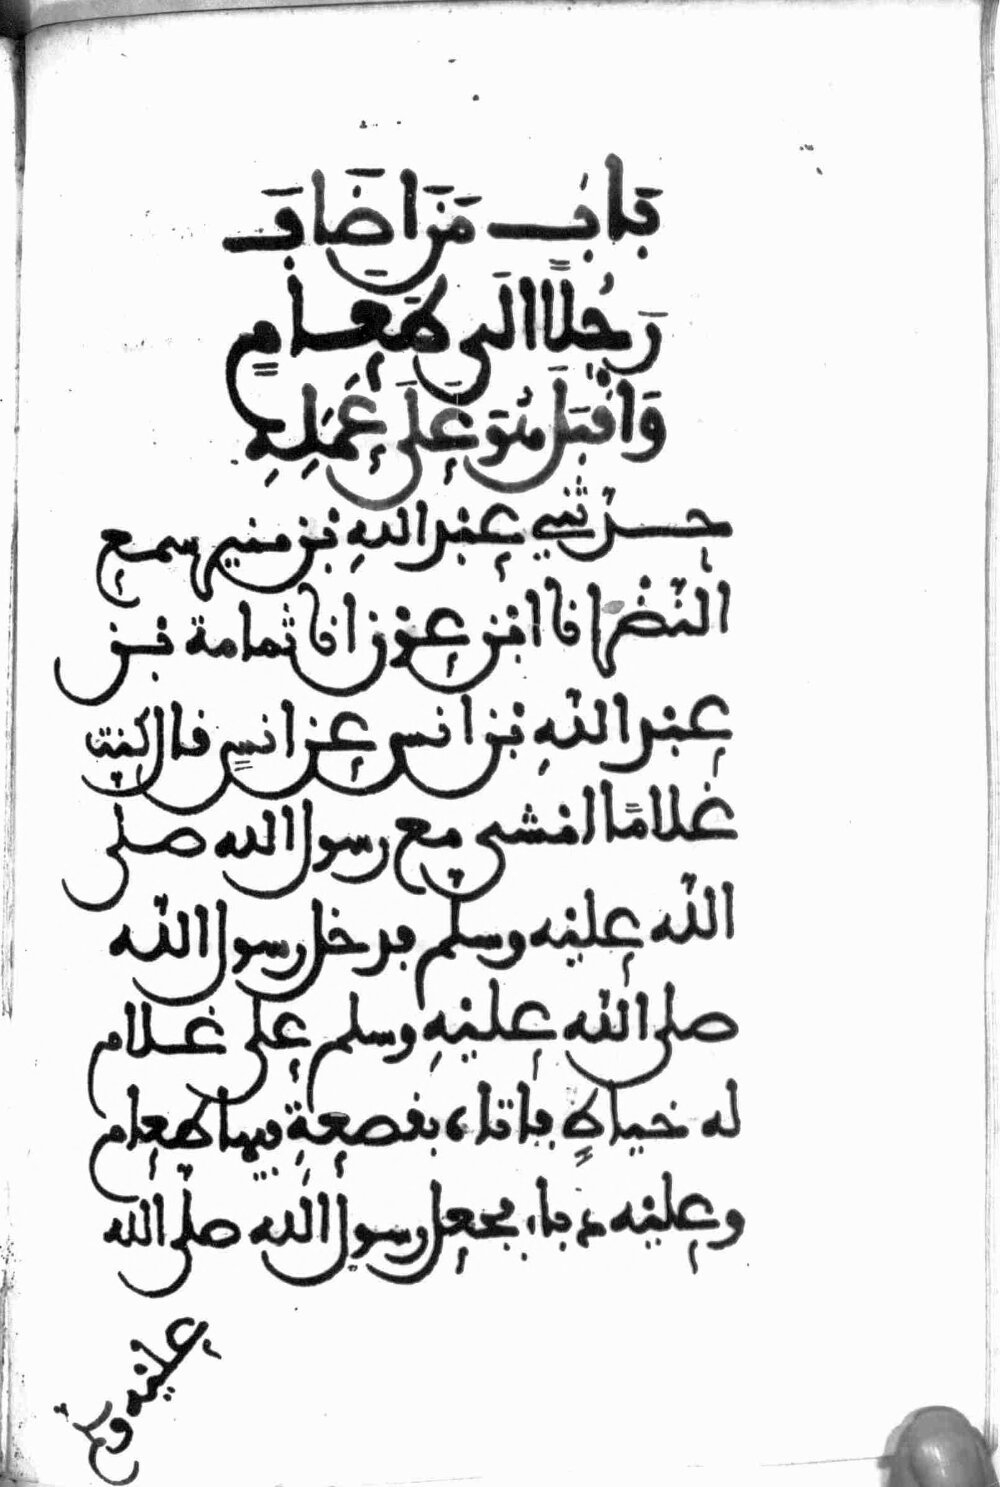 بَابُ مَنَ اضَافَ
رَجُلًا الَى طَعَامٍ
وَاقْبَلَ هُوَ عَلَى عَمَلِهِ
حدثني عبد اللهِ بن منير سمع
النضر انا ابن عون انا ثمامة بن
عبد اللهِ بن انس عن انسٍ قال كنت
غلامًا امشى مع رسول الله صلى
الله عليه وسلم فدخل رسول الله
صلى الله عليهِ وسلم على غلام
له خياطٍ فاتاه بقصعةٍ فيها طعام
وعليه دباء فجعل رسول الله صلى الله
عليه وسلم